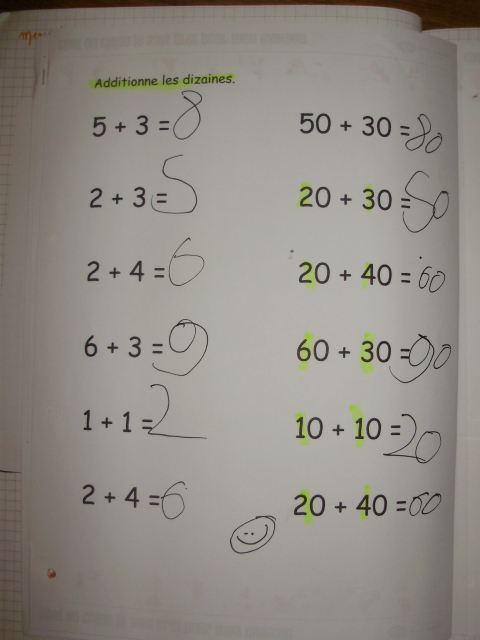 Additionne les dizaines.
5 + 3 = 8
50 + 30 = 80
2 + 3 = 5
20 + 30 = 50
2 + 4 = 6
20 + 40 = 60
6 + 3 = 9
60 + 30 = 90
1 + 1 = 2
10 + 10 = 20
2 + 4 = 6
20 + 40 = 60